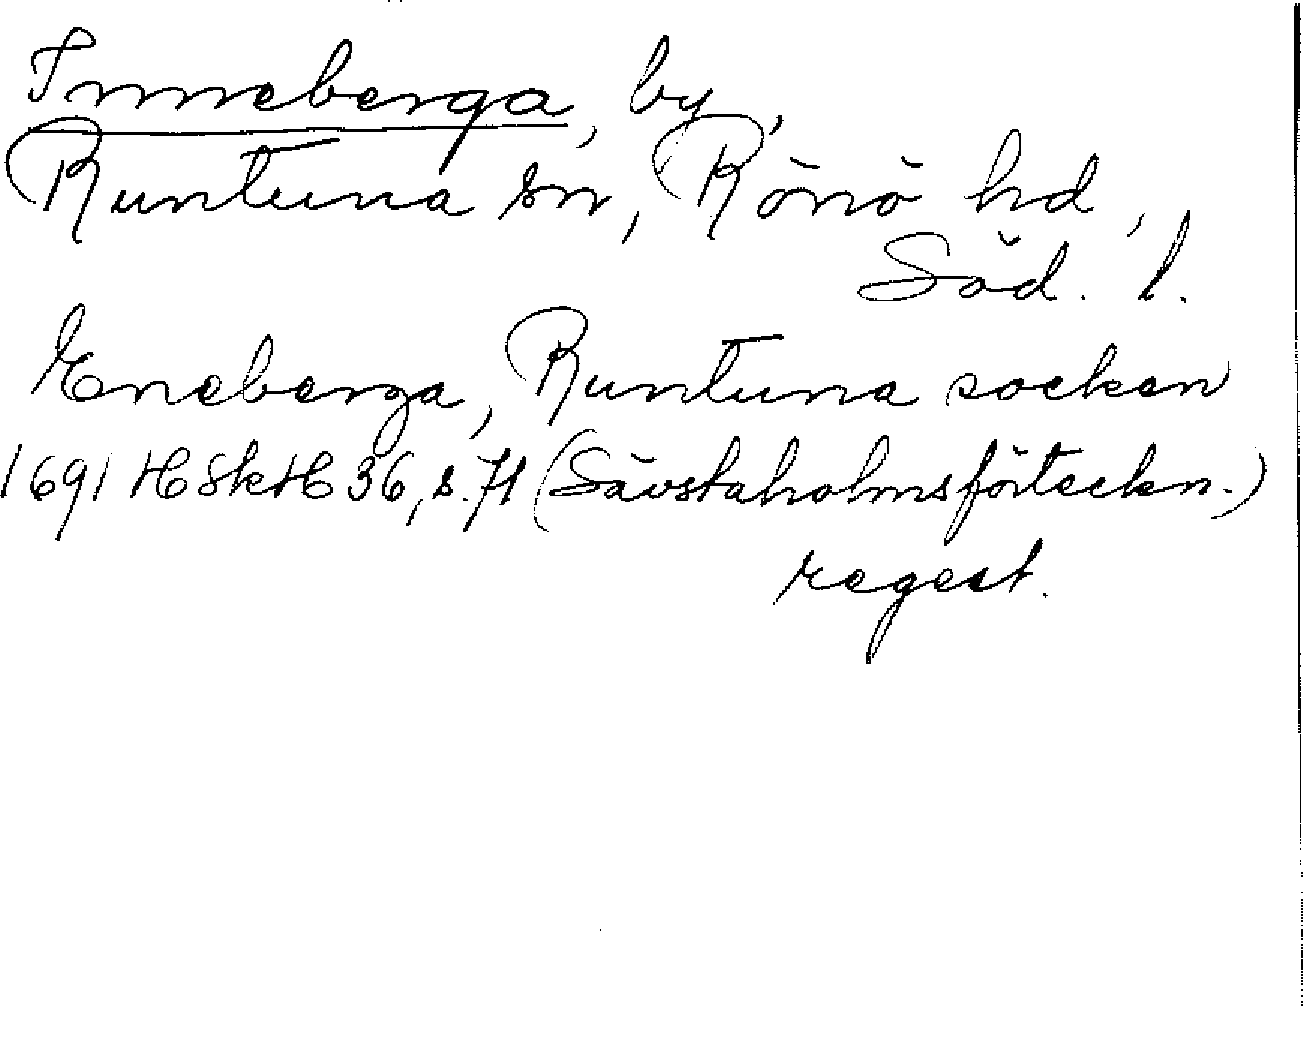 Inneberga, by,
Runtuna sn, Rönö hd,
Söd. l.
Eneberga, Runtuna socken
1691 HSkH 36, s. 71 (Sävstaholmsförteckn.)
regest.